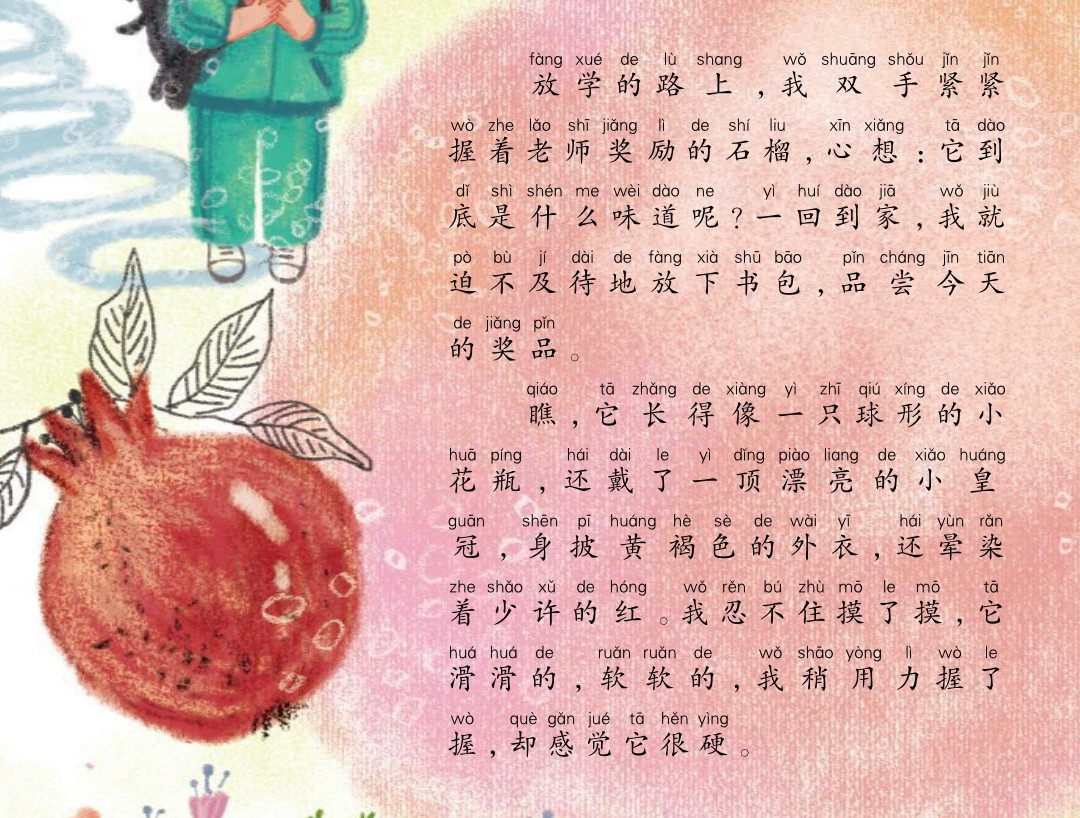 fàng xué de lù shang wǒ shuāng shǒu jǐn jǐn
放学的路上，我双手紧紧
wò zhe lǎo shī jiǎng lì de shí liu xīn xiǎng tā dào
握着老师奖励的石榴，心想：它到
dǐ shì shén me wèi dào ne yì huí dào jiā wǒ jiù
底是什么味道呢？一回到家，我就
pò bù jí dài de fàng xià shū bāo pǐn cháng jīn tiān
迫不及待地放下书包，品尝今天
de jiǎng pǐn
的奖品。
qiáo tā zhǎng de xiàng yì zhī qiú xíng de xiǎo
瞧，它长得像一只球形的小
huā píng hái dài le yì dǐng piào liang de xiǎo huáng
花瓶，还戴了一顶漂亮的小皇
guān shēn pī huáng hè sè de wài yī hái yùn rǎn
冠，身披黄褐色的外衣，还晕染
zhe shǎo xǔ de hóng wǒ rěn bú zhù mō le mō tā
着少许的红。我忍不住摸了摸，它
huá huá de ruǎn ruǎn de wǒ shāo yòng lì wò le
滑滑的，软软的，我稍用力握了
wò què gǎn jué tā hěn yìng
握，却感觉它很硬。